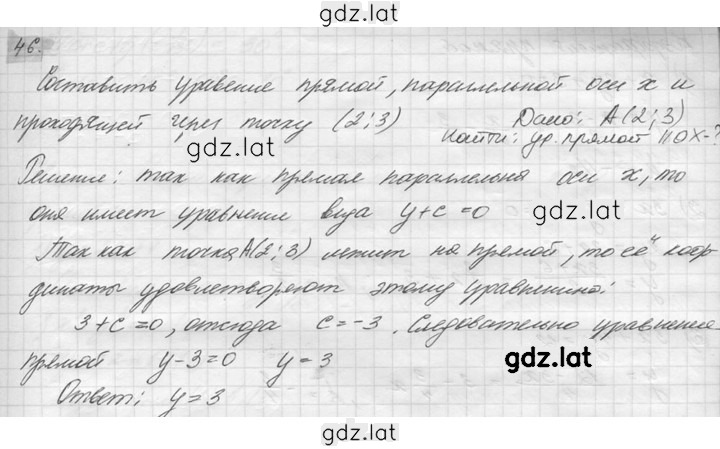 gdz.lat
46.
Составить уравение прямой, параллельной оси x и
проходящей через точку (2;3) Дано: A(2;3)
Найти: ур. прямой || OX-?
gdz.lat
Решение: так как прямая параллельна оси x, то
она имеет уравнение вида y+c=0
gdz.lat
Так как точка A(2;3) лежит на прямой, то её коор-
динаты удовлетворяют этому уравнению:
3+c=0, отсюда c=-3. Следовательно уравнение
прямой y-3=0 y=3
gdz.lat
Ответ: y=3
gdz.lat